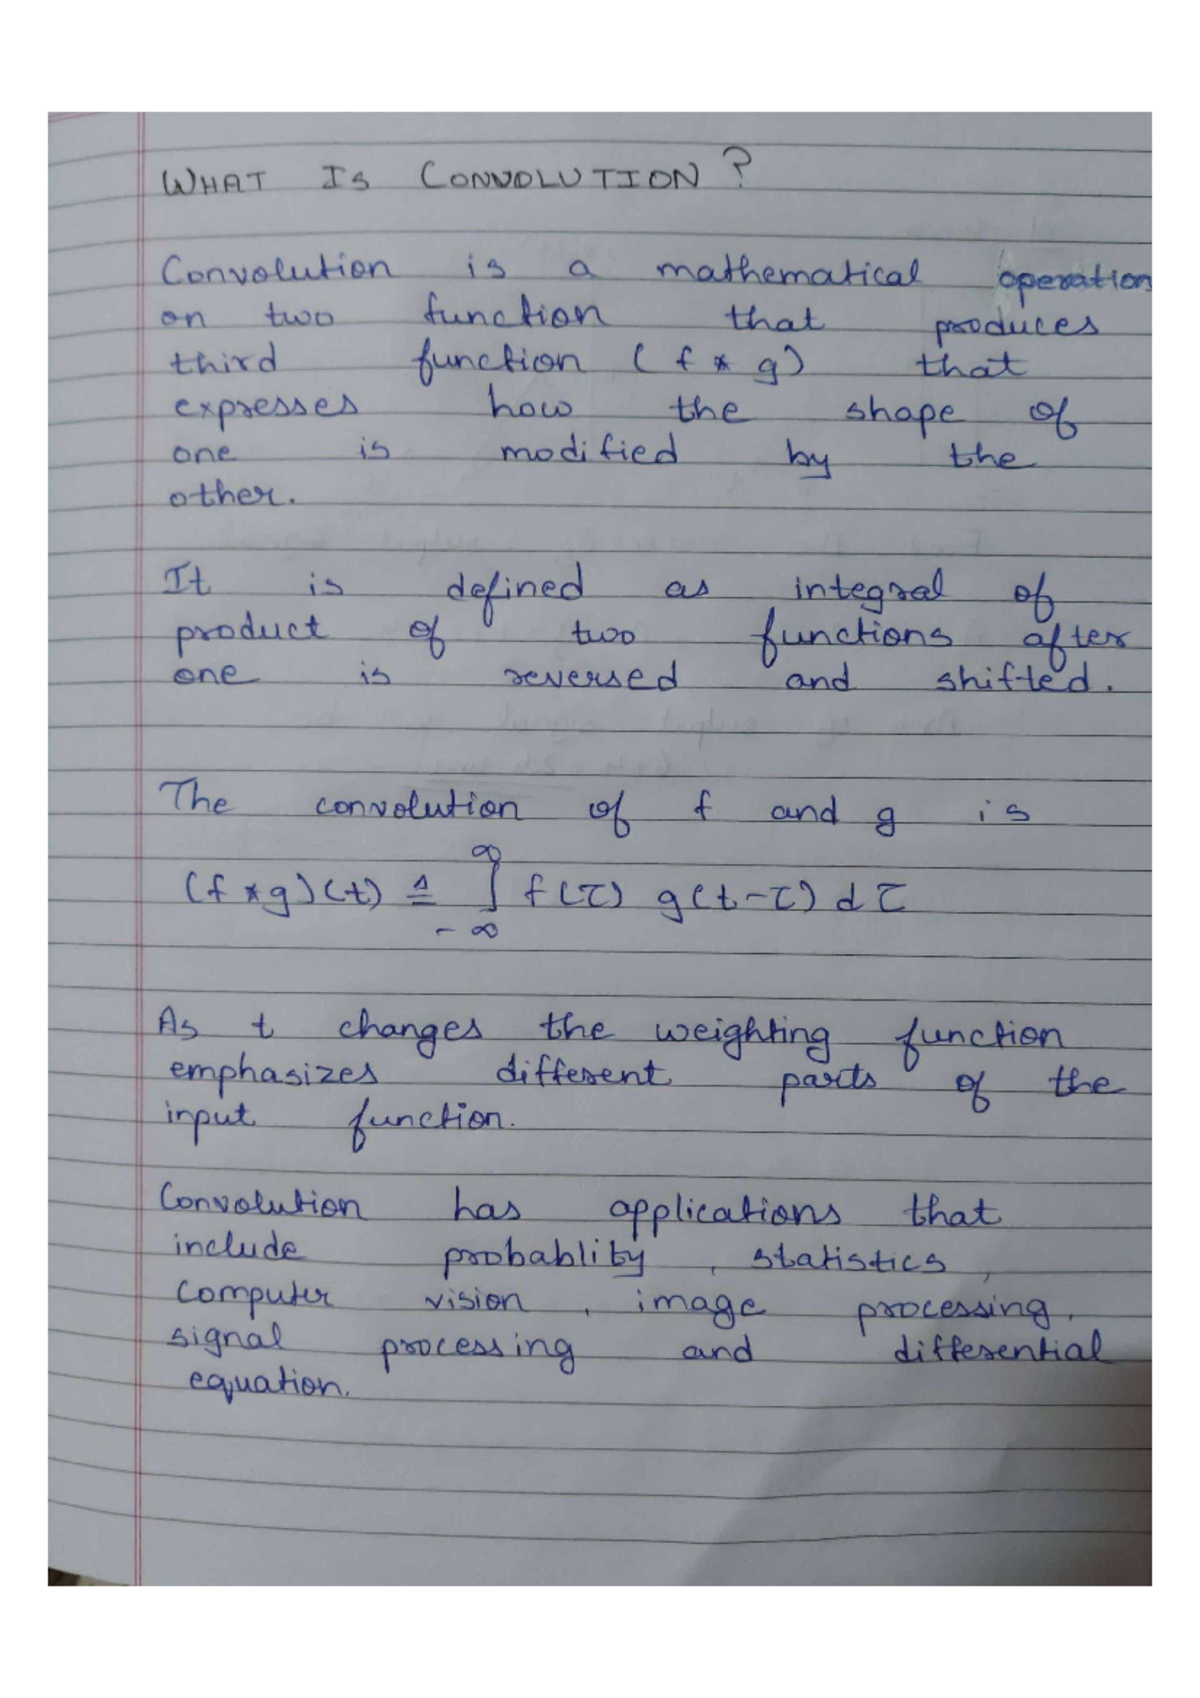 WHAT IS CONVOLUTION?
Convolution is a mathematical operation
on two function that produces
third function (f * g) that
expresses how the shape of
one is modified by the
other.
It is defined as integral of
product of two functions after
one is reversed and shifted.
The convolution of f and g is
(f * g)(t) ≜ ∫_{-∞}^{∞} f(τ) g(t-τ) dτ
As t changes the weighting function
emphasizes different parts of the
input function.
Convolution has applications that
include probablity, statistics,
computer vision, image processing,
signal processing and differential
equation.